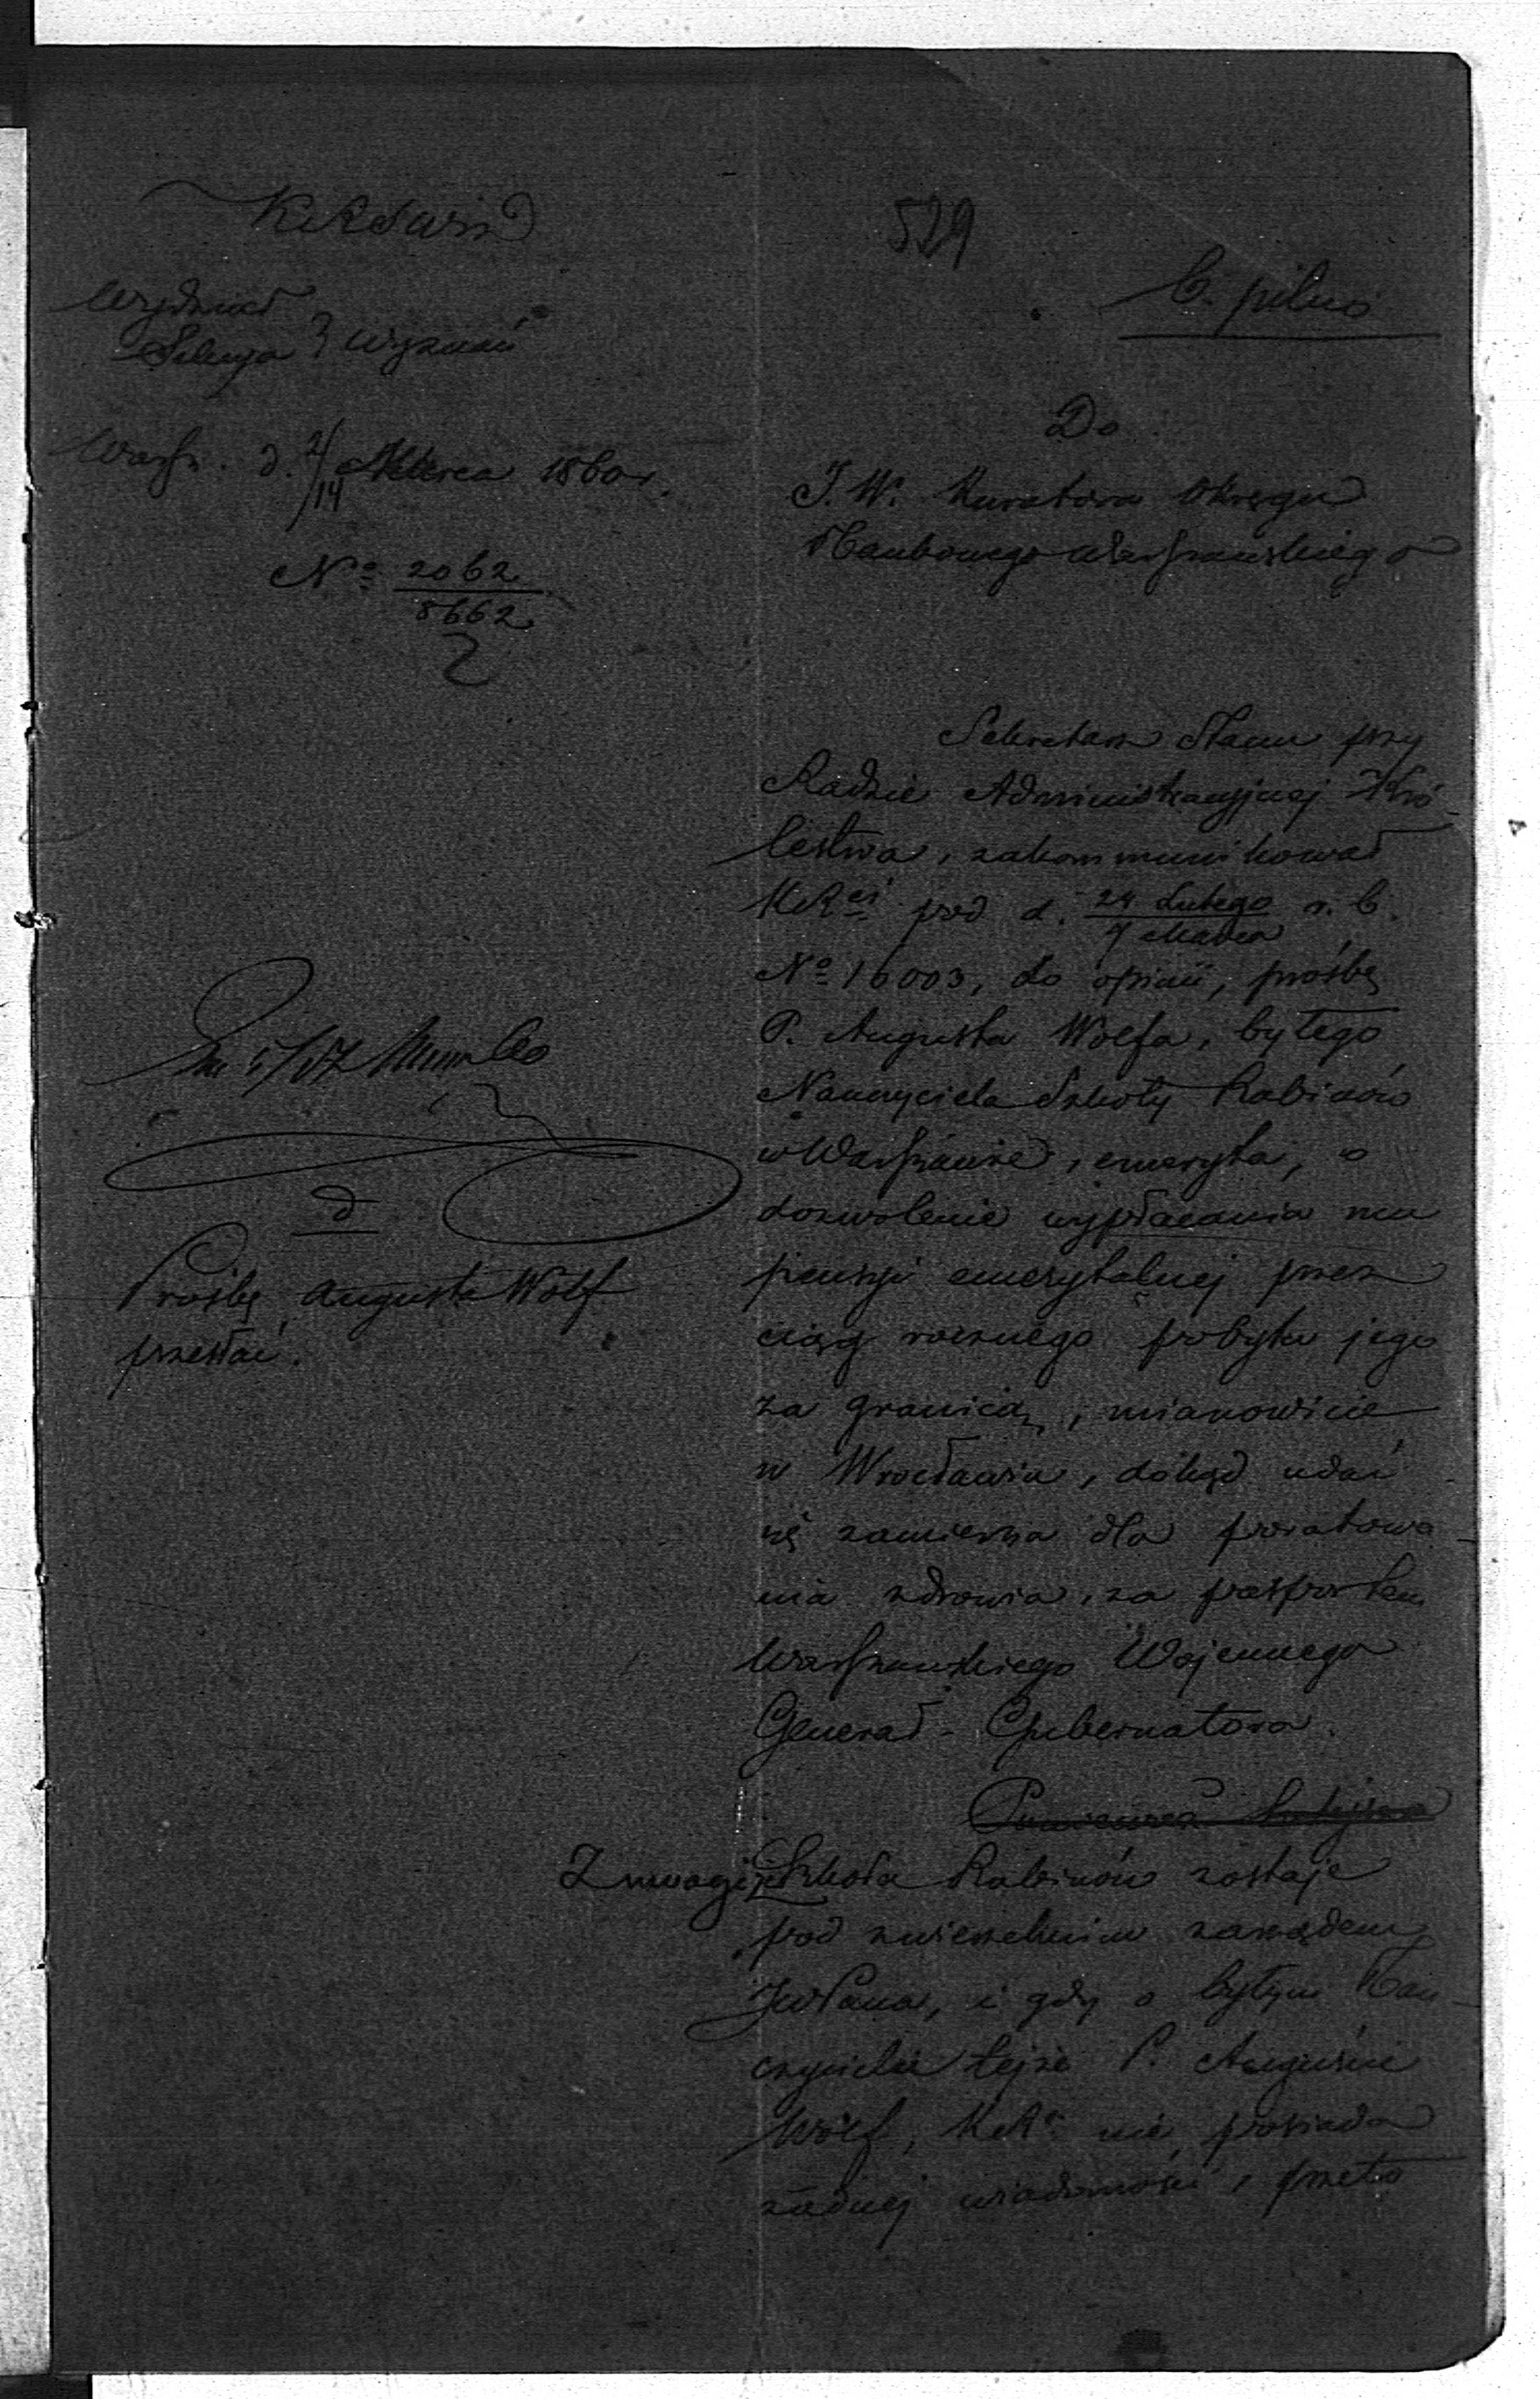 K R S W i D
529
b. pilno
Wydział
Sekcya } Wyznań
Warsz. d. 2/14 Marca 1860 r.
No 2062/8662
Do
J. W. Kuratora Okręgu
Naukowego Warszawskiego
Sekretarz Stanu przy
Radzie Administracyjnej Kró-
lestwa, zakommunikował
KRei pod d. 24 Lutego/7 Marca r. b.
No 16003, do opinii, prośbę
P. Augusta Wolfa, byłego
Nauczyciela Szkoły Rabinów
w Warszawie, emeryta, o
dozwolenie wypłacania mu
pensyi emerytalnej przez
ciąg rocznego pobytu jego
za granicą, mianowicie
w Wrocławiu, dokąd udać
się zamierza dla poratowa-
nia zdrowia, za paszportem
Warszawskiego Wojennego
Generał-Gubernatora.
Ponieważ
Z uwagi że Szkoła Rabinów zostaje
pod zwierzchnim zarządem
JWPana, i gdy o byłym Nau-
czycielu tejże P. Auguście
Wolf, KRa nie posiada
żadnej wiadomości, przeto
d
Prośbę Augusta Wolf
przesłać.